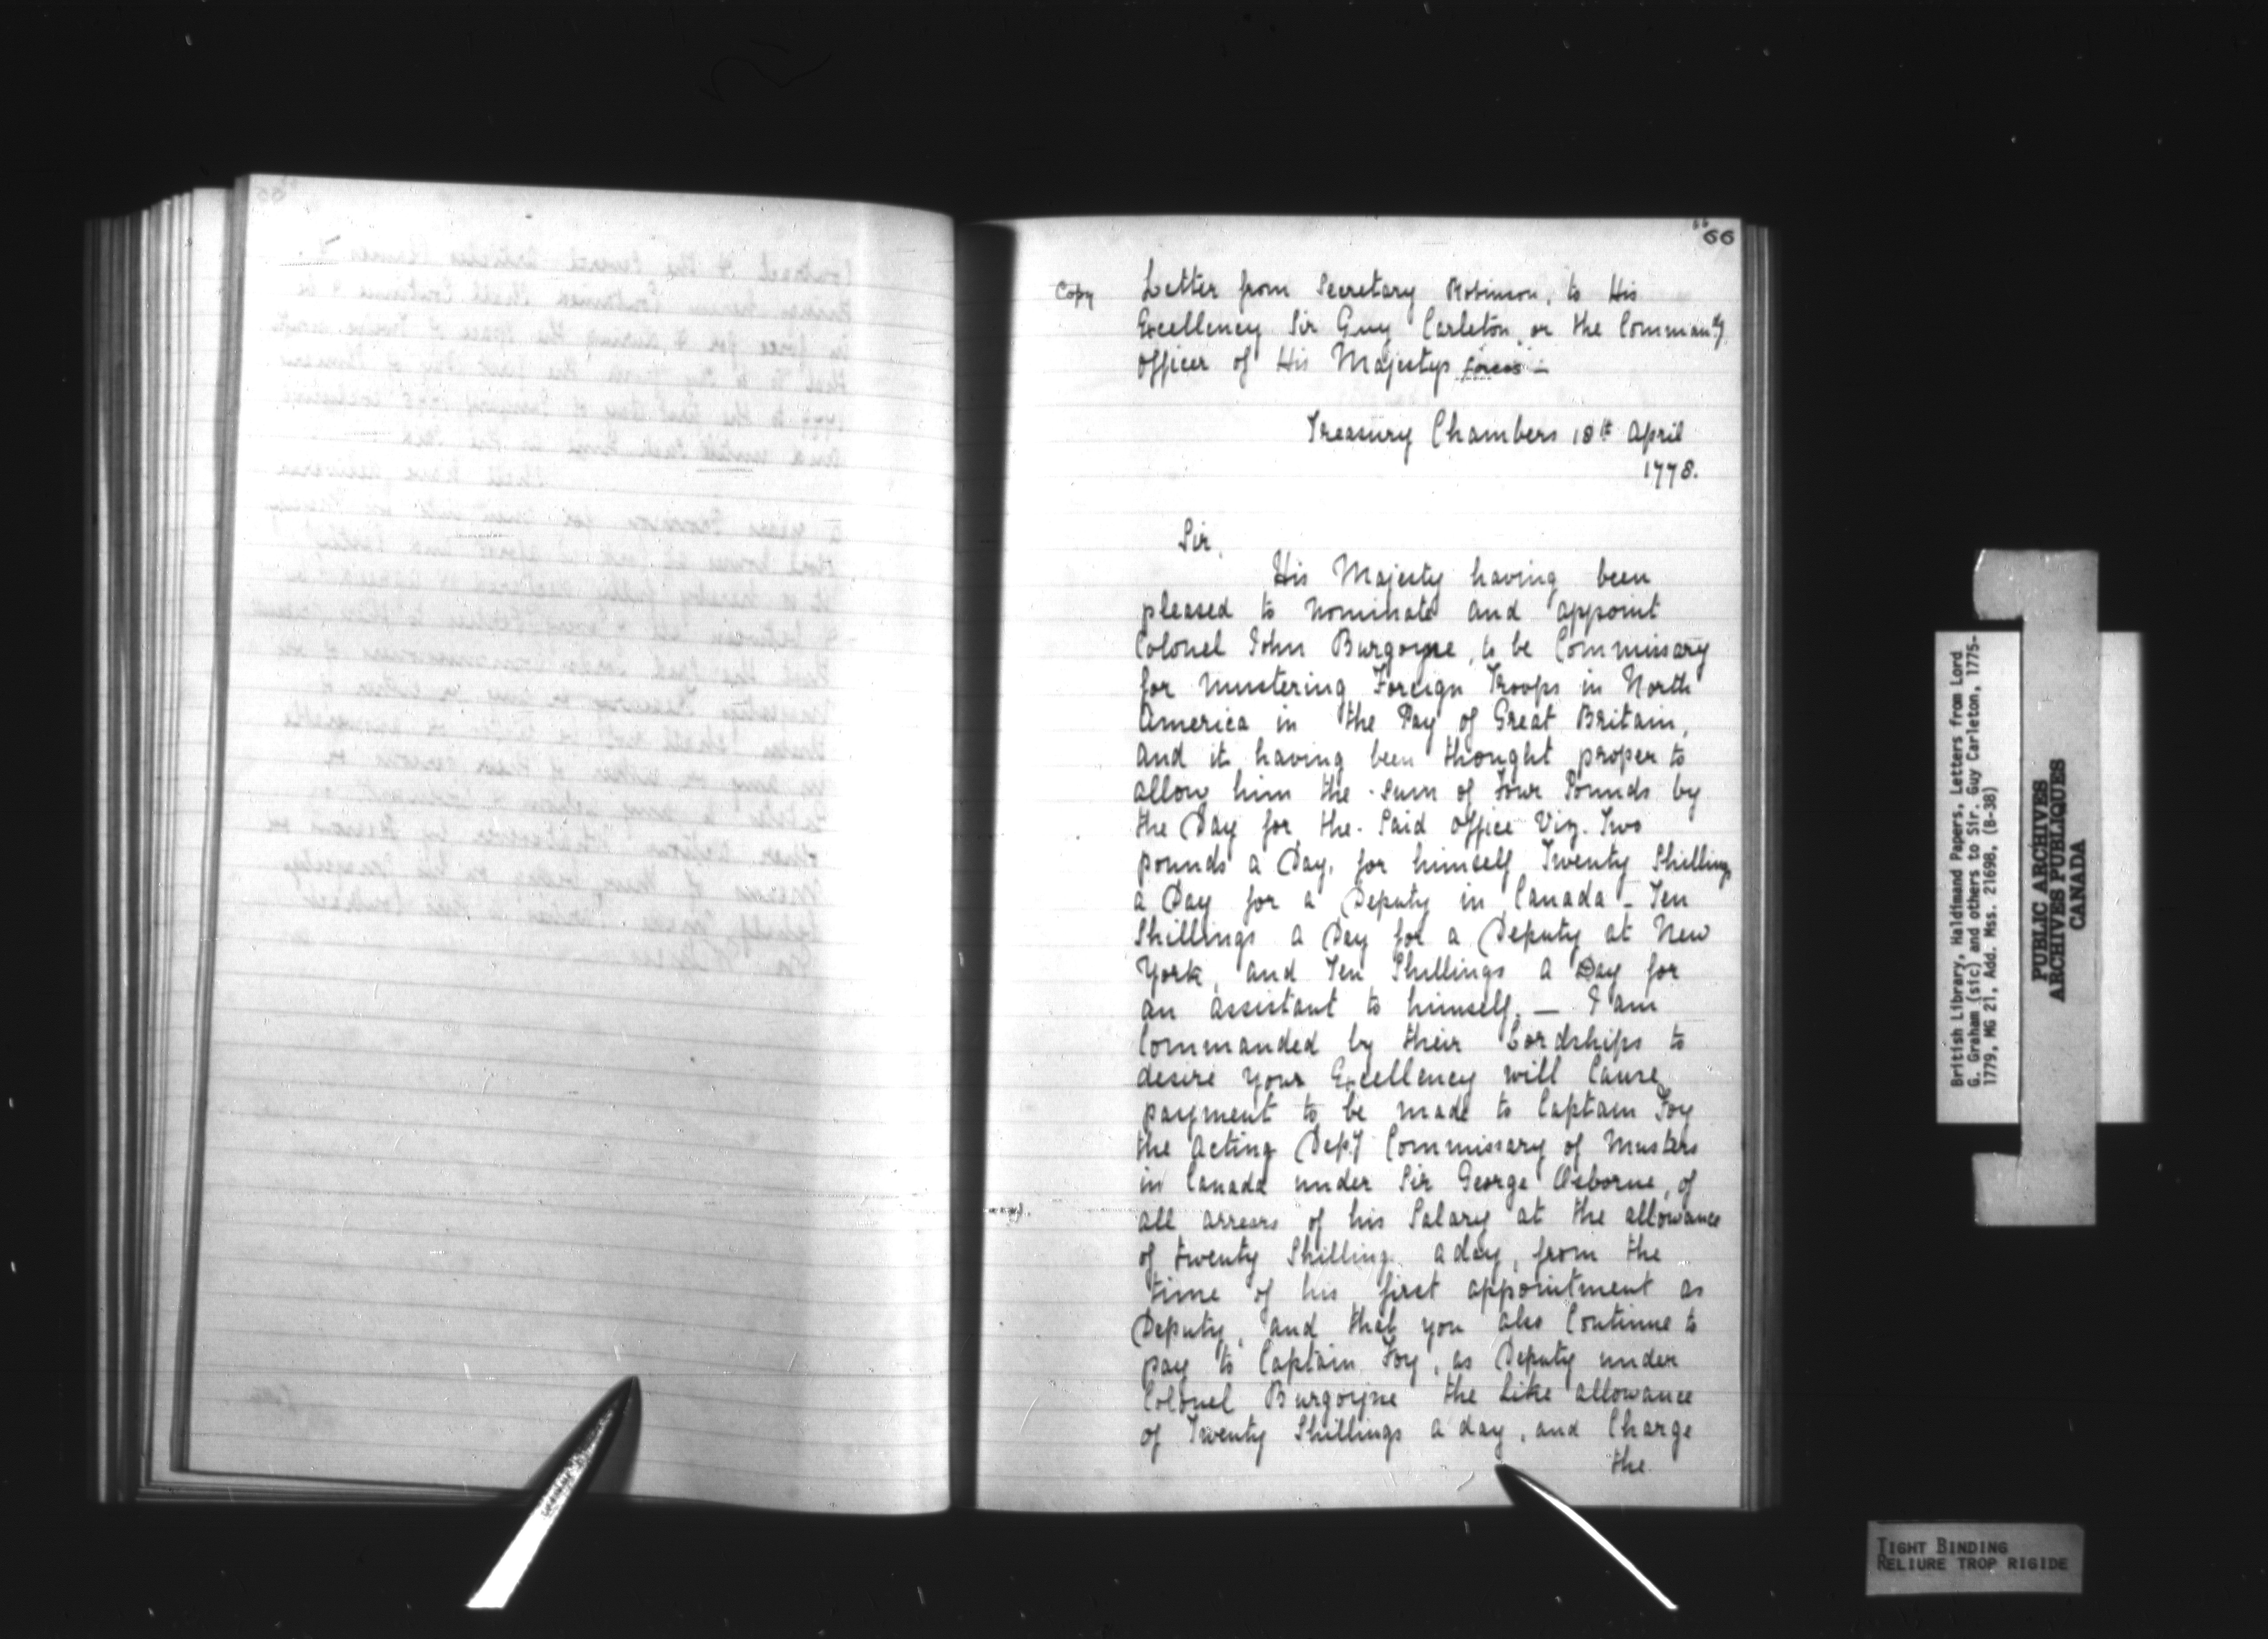 66
66
Copy
Letter from Secretary Robinson, to His
Excellency Sir Guy Carleton, or the Commandg
Officer of His Majestys Forces —
Treasury Chambers 18th April
1778.
Sir,
His Majesty having been
pleased to nominate and appoint
Colonel John Burgoyne, to be Commissary
for mustering Foreign Troops in North
America in the Pay of Great Britain,
and it having been thought proper to
allow him the sum of Four Pounds by
the Day for the Said Office Viz. Two
pounds a Day, for himself Twenty Shillings
a Day for a Deputy in Canada — Ten
Shillings a Day for a Deputy at New
York, and Ten Shillings a Day for
an assistant to himself. — I am
Commanded by their Lordships to
desire your Excellency will Cause
payment to be made to Captain Foy
the Acting Depy Commissary of Musters
in Canada under Sir George Osborne, of
all arrears of his Salary at the allowance
of twenty Shilling a day, from the
time of his first appointment as
Deputy, and that you also Continue to
pay to Captain Foy, as Deputy under
Colonel Burgoyne the Like allowance
of Twenty Shillings a day, and Charge
the
British Library, Haldimand Papers, Letters from Lord
G. Graham (sic) and others to Sir. Guy Carleton, 1775-
1779, MG 21, Add. Mss. 21698, (B-38)
PUBLIC ARCHIVES
ARCHIVES PUBLIQUES
CANADA
TIGHT BINDING
RELIURE TROP RIGIDE